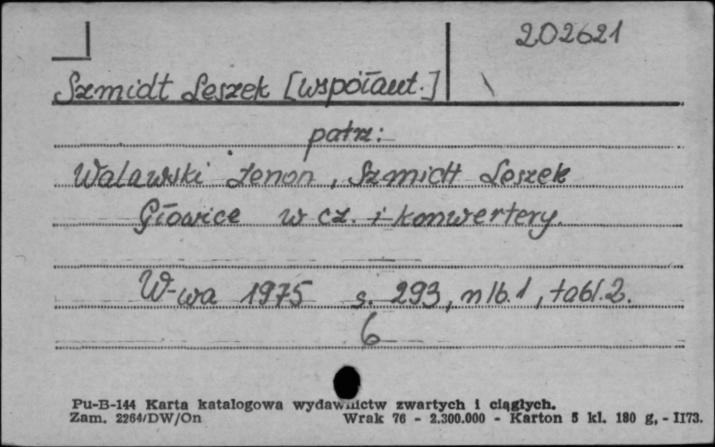 202621
Szmidt Leszek [współaut.]
patrz:
Walawski Zenon, Szmidt Leszek
Głowice w cz. i konwertery.
W-wa 1975 s. 293, nlb. 1, tabl. 2.
6
Pu-B-144 Karta katalogowa wydawnictw zwartych i ciągłych.
Zam. 2264/DW/On Wrak 76 - 2.300.000 - Karton 5 kl. 180 g. - II73.